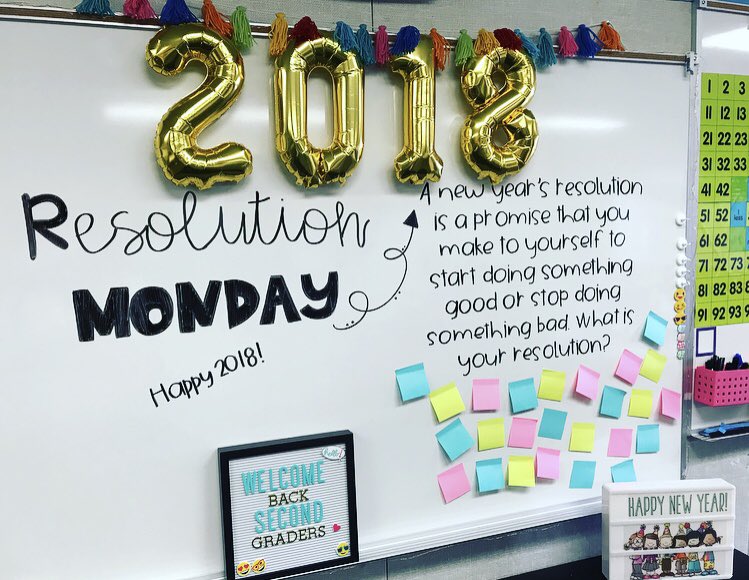 2018
Resolution
MONDAY
Happy 2018!
A new year's resolution
is a promise that you
make to yourself to
start doing something
good or stop doing
something bad. What is
your resolution?
hello
WELCOME
BACK
SECOND
GRADERS
HAPPY NEW YEAR!
1 2 3
11 12 13
21 22 23
31 32 33
41 42
51 52 1 less
61 62
71 72 73
81 82 83
91 92 93